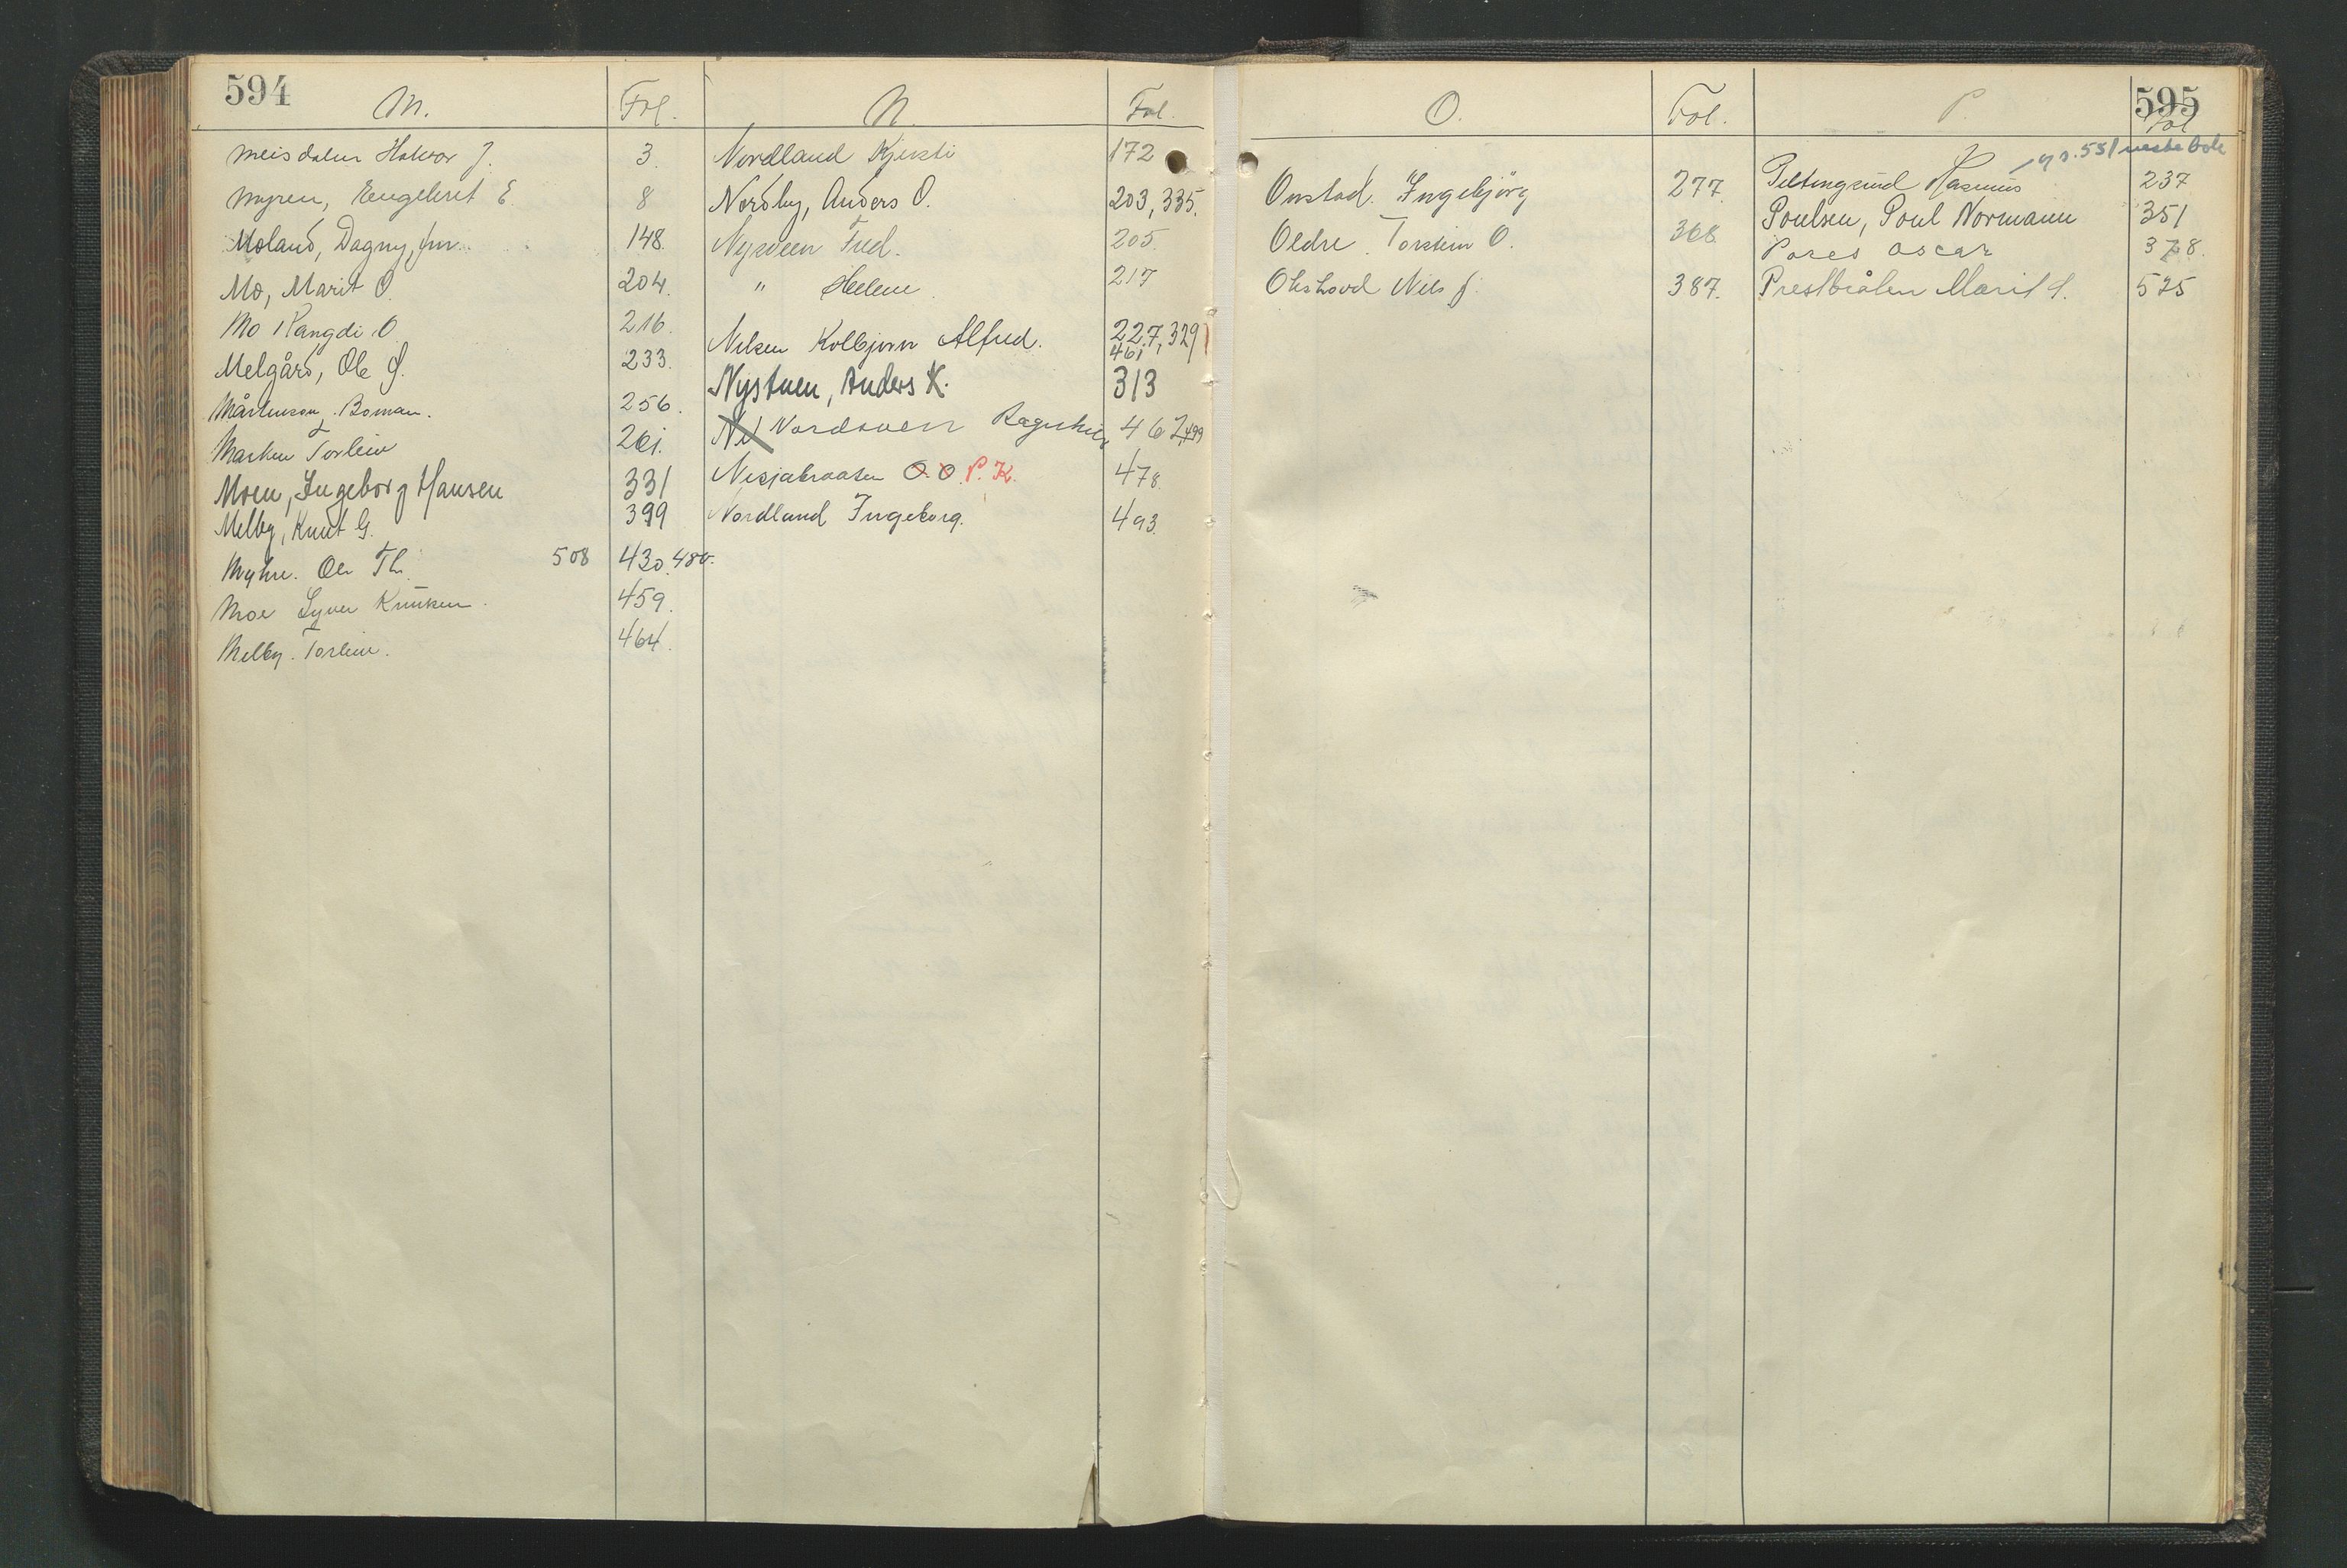 594
M. Fol.
Meisdalen Halvor J. 3.
Myren, Engebret E. 8
Moland, Dagny, fru. 148.
Mo, Marit O. 204.
Mo Rangdi O. 216.
Melgård, Ole Ø. 233.
Mårtenson, Boman. 256.
Marken Torleiv 261.
Moen, Ingeborg Hansen 331
Melby, Knut G. 399
Myhre. Ole Th. 508 430, 480.
Moe Syver Knutsen. 459.
Melby. Torleiv. 464.
N. Fol.
Nordland Kjersti 172
Nordby, Anders O. 203, 335.
Nysveen Fred. 205.
" Helene. 217
Nilsen Kolbjørn Alfred. 227, 329,
461
Nystuen, Anders K. 313
Nil Nordsveen Ragnhild 462, 499
Nesjabraaten O. O. P. K. 478.
Nordland Ingeborg. 493.
595
O. Fol.
Onstad. Ingebjörg 277.
Oldre. Torstein O. 368
Olishovd Nils J. 387.
P. Fol
551 neste bok
Peltingsrud Rasmus 237
Poulsen, Poul Normann 351
Pores Oscar 378.
Prestbråten Marit S. 525